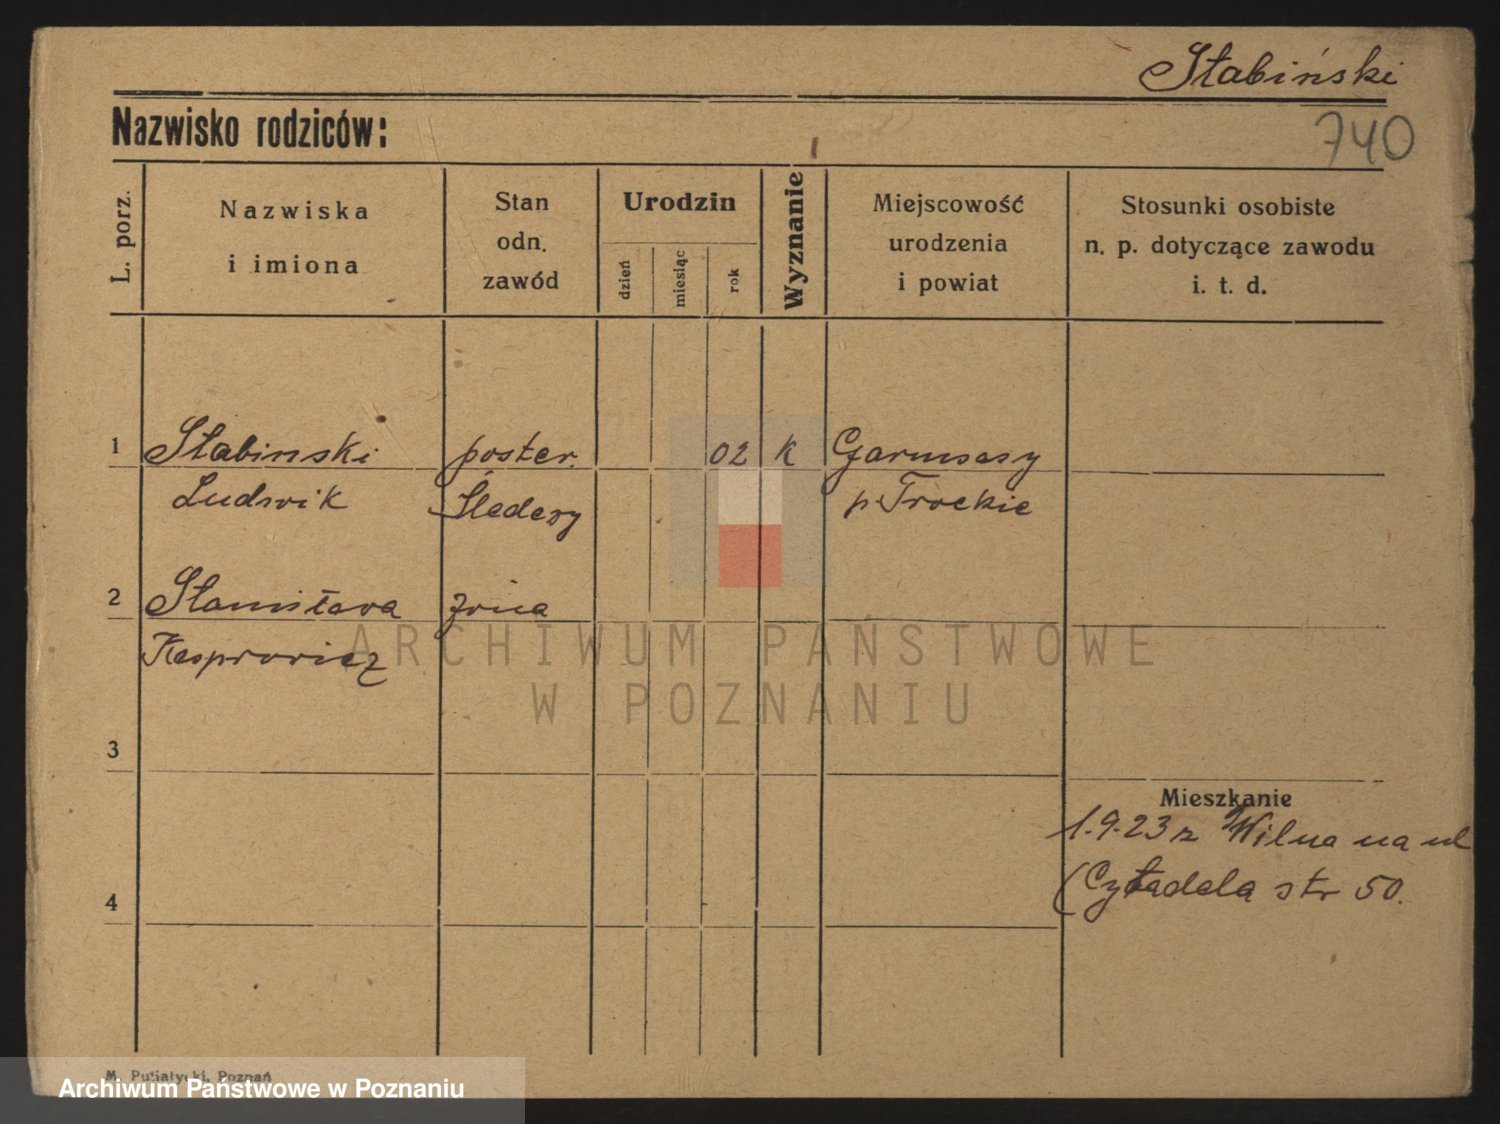 Słabiński
Nazwisko rodziców:
740
L. porz.
Nazwiska
i imiona
Stan
odn.
zawód
Urodzin
dzień
miesiąc
rok
Wyznanie
Miejscowość
urodzenia
i powiat
Stosunki osobiste
n. p. dotyczące zawodu
i. t. d.
1 Słabinski poster. 02 K
Ludwik Śledczy p. Trockie
2 Stanisława żona
Kasprowicz
ARCHIWUM PAŃSTWOWE
W POZNANIU
3
Mieszkanie
1.9.23 z Wilna na ul
4
(Cytadela str 50.
M. Putiatycki, Poznań
Archiwum Państwowe w Poznaniu